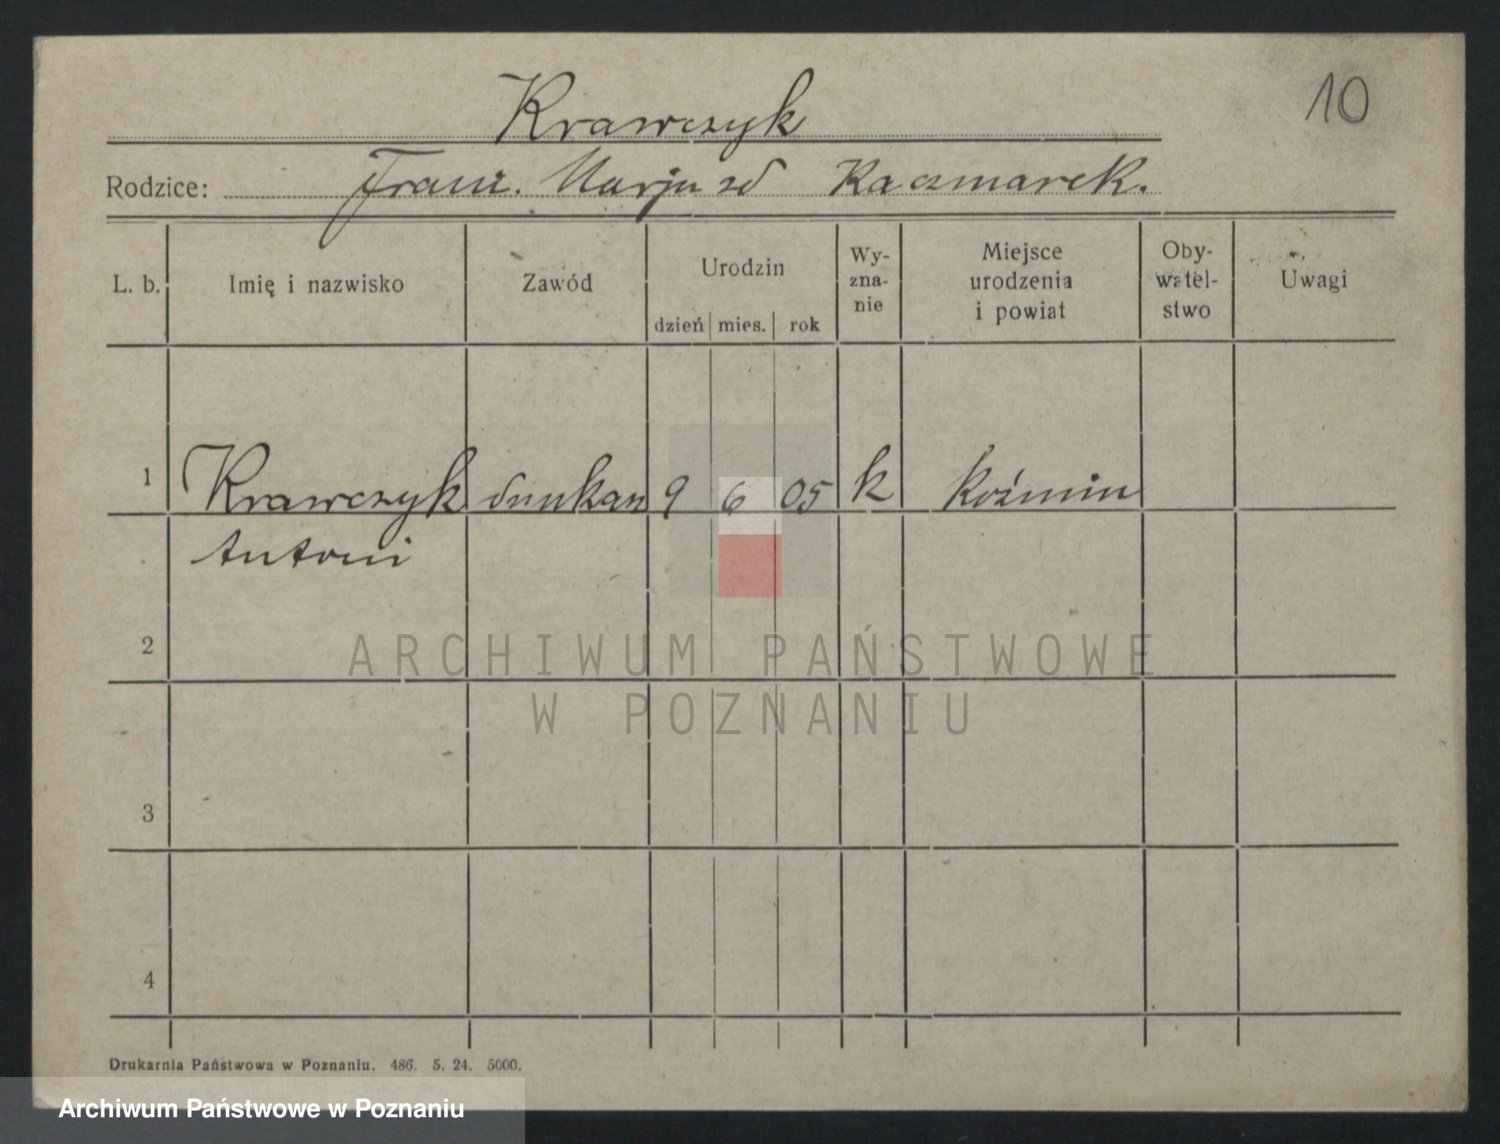 10
Krawczyk
Rodzice: Franc. Marja zd Kaczmarek.
L. b. Imię i nazwisko Zawód Urodzin dzień mies. rok Wy-zna-nie Miejsce urodzenia i powiat Oby-watel-stwo Uwagi
1 Krawczyk 9 6 05 k Koźmin
Antoni
2
3
4
ARCHIWUM PAŃSTWOWE
W POZNANIU
Drukarnia Państwowa w Poznaniu. 486. 5. 24. 5000.
Archiwum Państwowe w Poznaniu